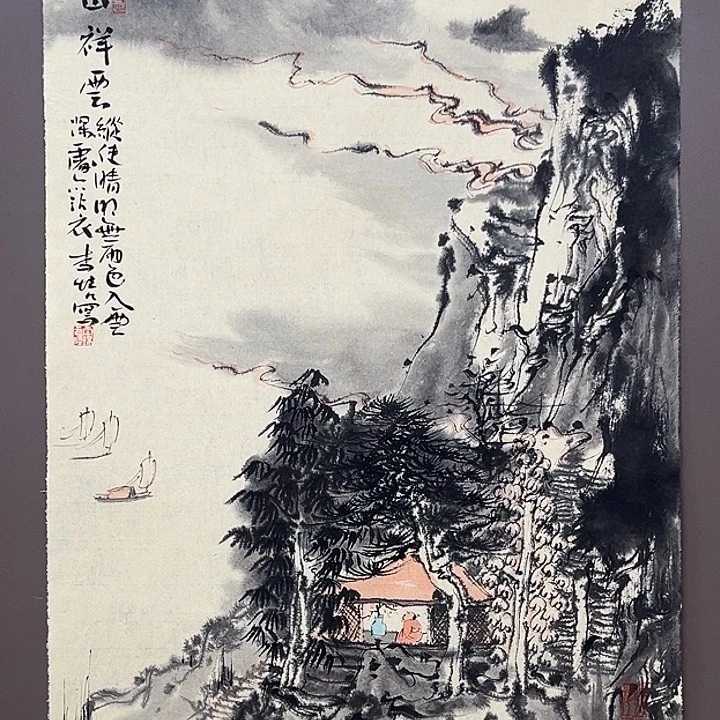 山祥雲
縱使晴明無雨色入雲
深處亦沾衣 李寫